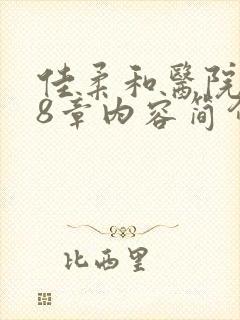 佳柔和醫院
8章内容简介
比西里